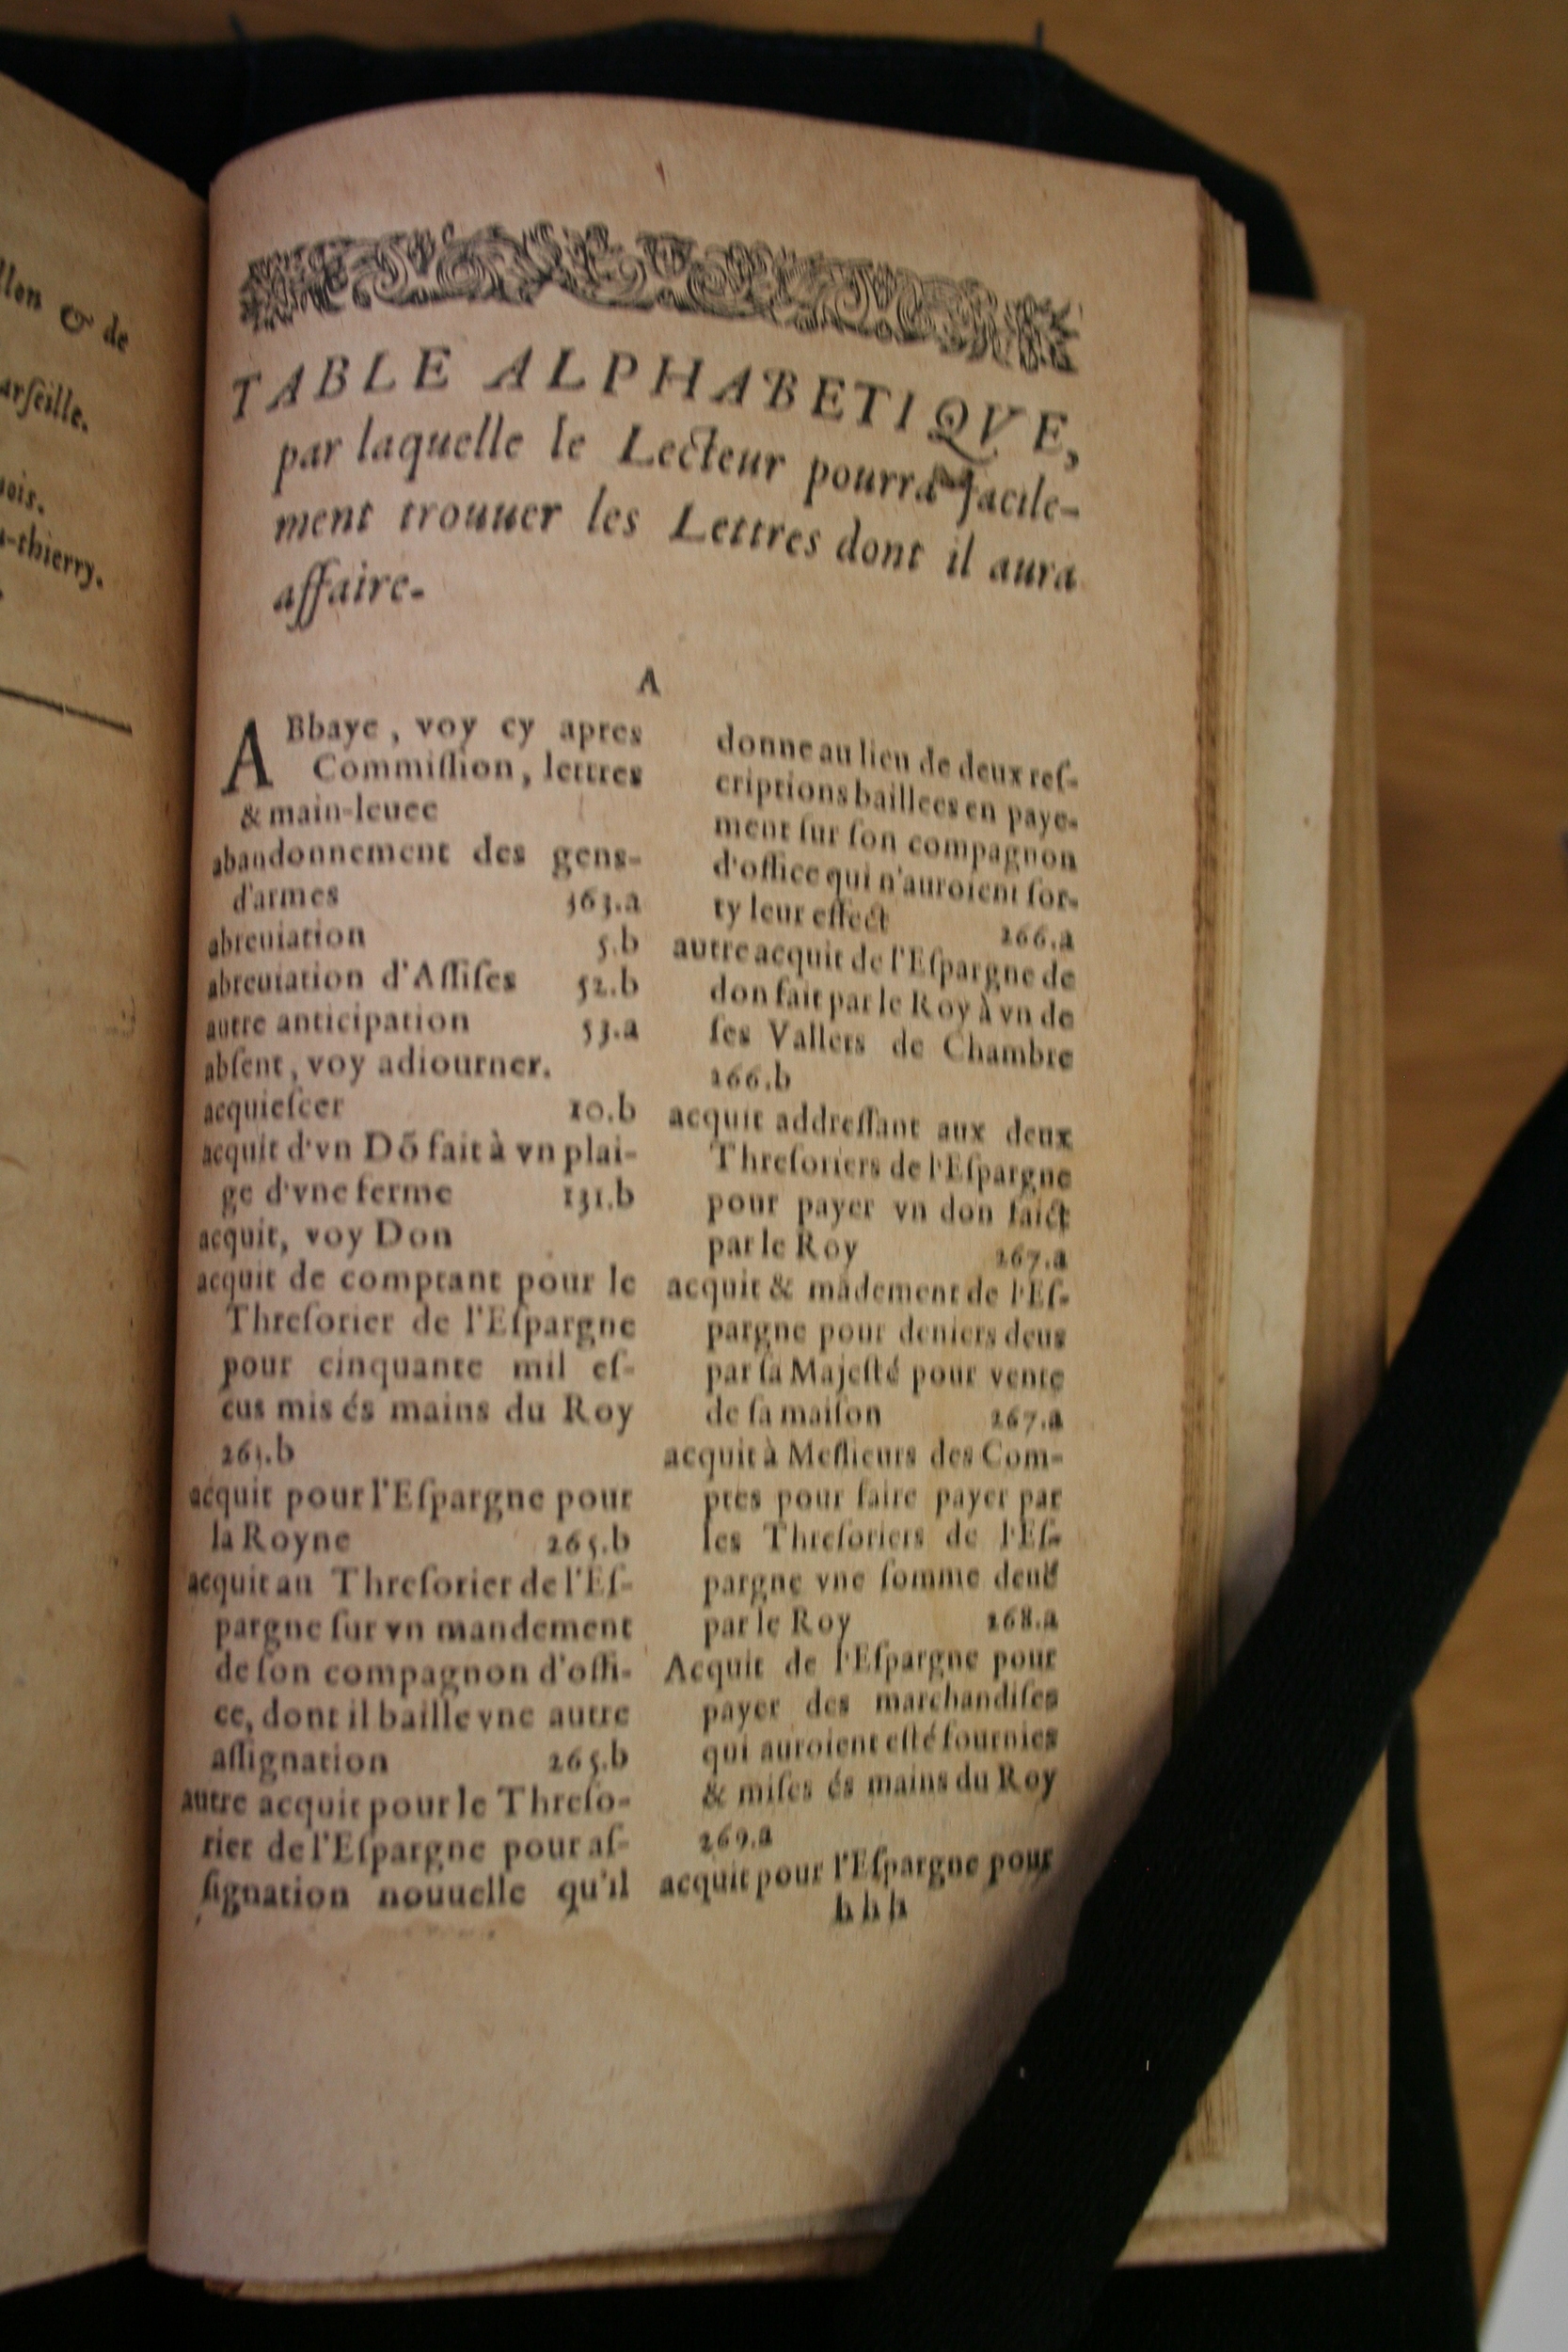 llon & de
arſeille.
ois.
-thierry.
TABLE ALPHABETIQVE,
par laquelle le Lecteur pourra facile-
ment trouuer les Lettres dont il aura
affaire.
A
ABbaye, voy cy apres
Commiſſion, lettres
& main-leuee
abandonnement des gens-
d'armes 363.a
abreuiation 5.b
abreuiation d'Aſſiſes 52.b
autre anticipation 53.a
abſent, voy adiourner.
acquieſcer 10.b
acquit d'vn Dō fait à vn plai-
ge d'vne ferme 131.b
acquit, voy Don
acquit de comptant pour le
Threſorier de l'Eſpargne
pour cinquante mil eſ-
cus mis és mains du Roy
acquit pour l'Eſpargne pour
la Royne 265.b
acquit au Threſorier de l'Eſ-
pargne ſur vn mandement
de ſon compagnon d'offi-
ce, dont il baille vne autre
aſſignation 265.b
autre acquit pour le Threſo-
rier de l'Eſpargne pour aſ-
ſignation nouuelle qu'il
donne au lieu de deux reſ-
criptions baillees en paye-
ment ſur ſon compagnon
d'office qui n'auroient ſor-
ty leur effect 266.a
autre acquit de l'Eſpargne de
don fait par le Roy à vn de
ſes Vallets de Chambre
266.b
acquit addreſſant aux deux
Threſoriers de l'Eſpargne
pour payer vn don faict
par le Roy 267.a
acquit & mādement de l'Eſ-
pargne pour deniers deus
par ſa Majeſté pour vente
de ſa maiſon 267.a
acquit à Meſſieurs des Com-
ptes pour faire payer par
les Threſoriers de l'Eſ-
pargne vne ſomme deuë
par le Roy 268.a
Acquit de l'Eſpargne pour
payer des marchandiſes
qui auroient eſté fournies
& miſes és mains du Roy
269.a
acquit pour l'Eſpargne pour
hhh